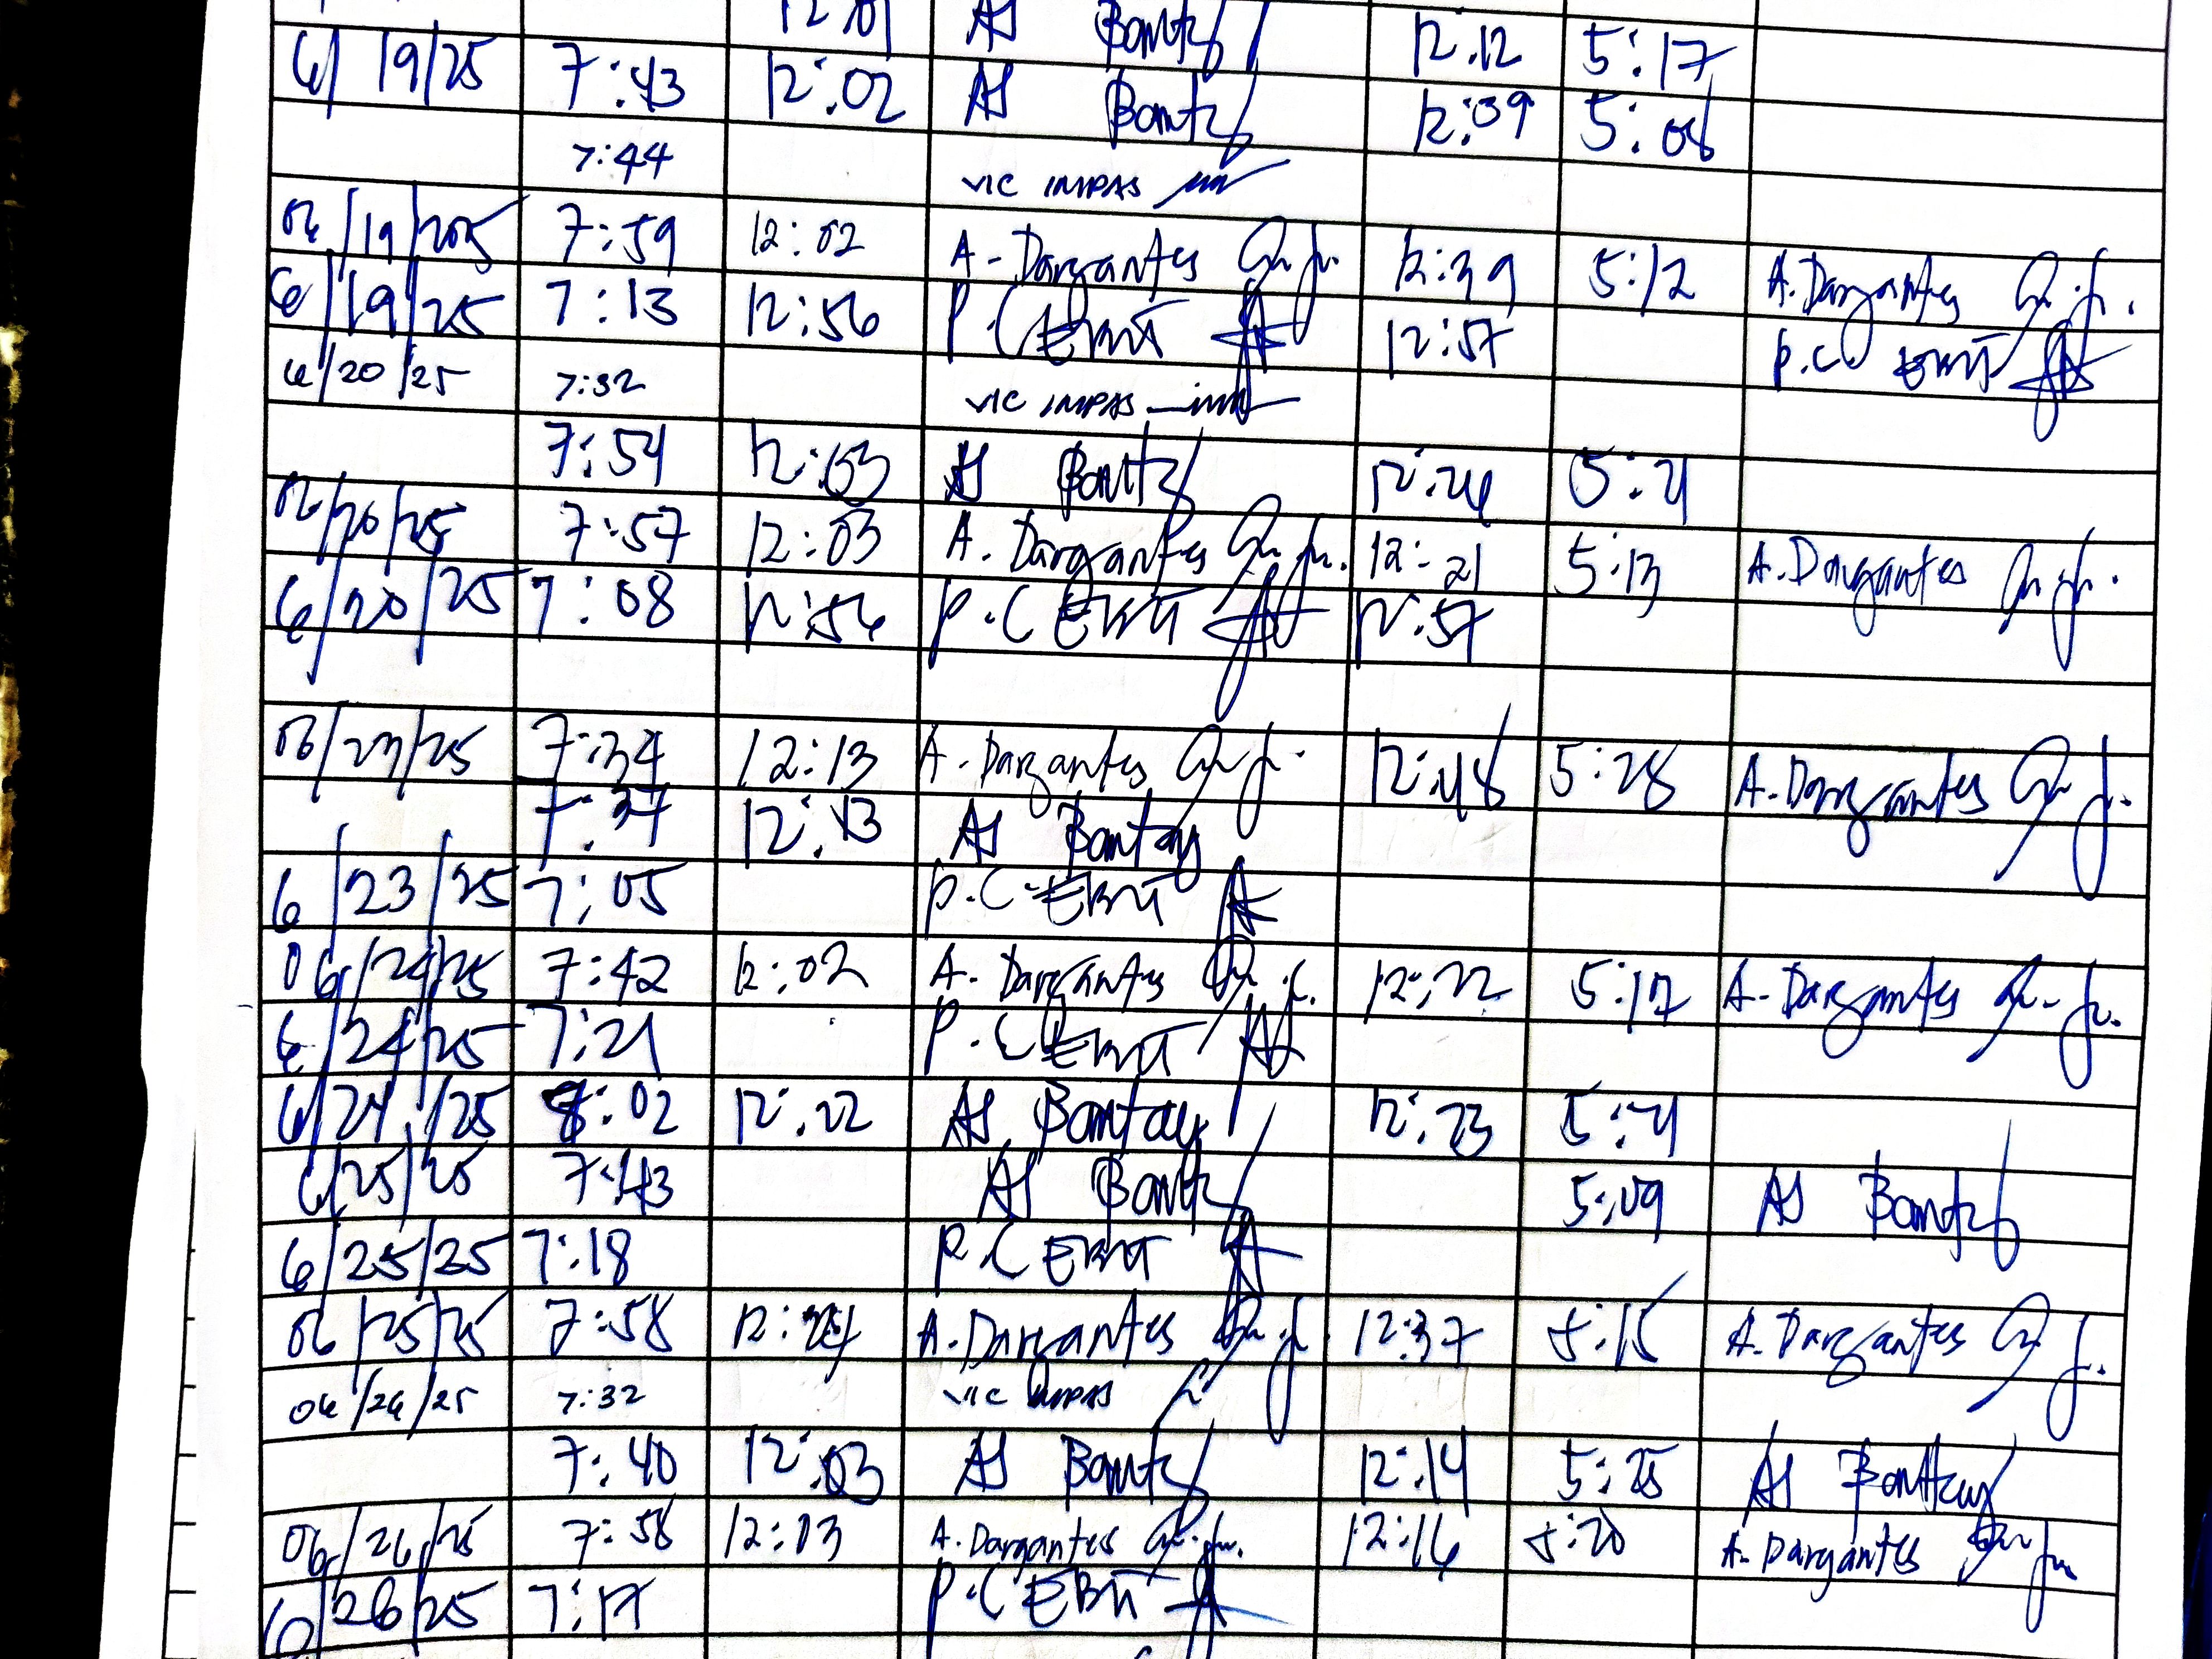 12:01 AS Bontz 12:12 5:17
6/19/25 7:43 12:02 AS Bontz 12:39 5:08
7:44 VIC IMPAS
06/19/2025 7:59 12:02 A. Dargantes Jr. 12:39 5:12 A. Dargantes Jr.
6/19/25 7:13 12:56 P.C EBIT 12:57 P.C EBIT
6/20/25 7:32 VIC IMPAS
7:54 12:03 AS Bontz 12:24 5:21
06/20/25 7:57 12:03 A. Dargantes Jr. 12:21 5:13 A. Dargantes Jr.
6/20/25 7:08 12:56 P.C EBIT 12:57
06/23/25 7:34 12:13 A. Dargantes Jr. 12:48 5:28 A. Dargantes Jr.
7:37 12:13 AS Bontay
6/23/25 7:05 P.C EBIT
06/24/25 7:42 12:02 A. Dargantes Jr. 12:22 5:17 A. Dargantes Jr.
6/24/25 7:21 P.C EBIT
6/24/25 8:02 12:22 AS Bontay 12:23 5:21
6/25/25 7:43 AS Bontz 5:09 AS Bontz
6/25/25 7:18 P.C EBIT
06/25/25 7:58 A. Dargantes Jr. 12:37 5:15 A. Dargantes Jr.
06/26/25 7:32 VIC IMPAS
7:40 12:03 AS Bontz 12:14 5:25 AS Bontay
06/26/25 7:58 12:03 A. Dargantes Jr. 12:16 5:20 A. Dargantes Jr.
6/26/25 7:17 P.C EBIT